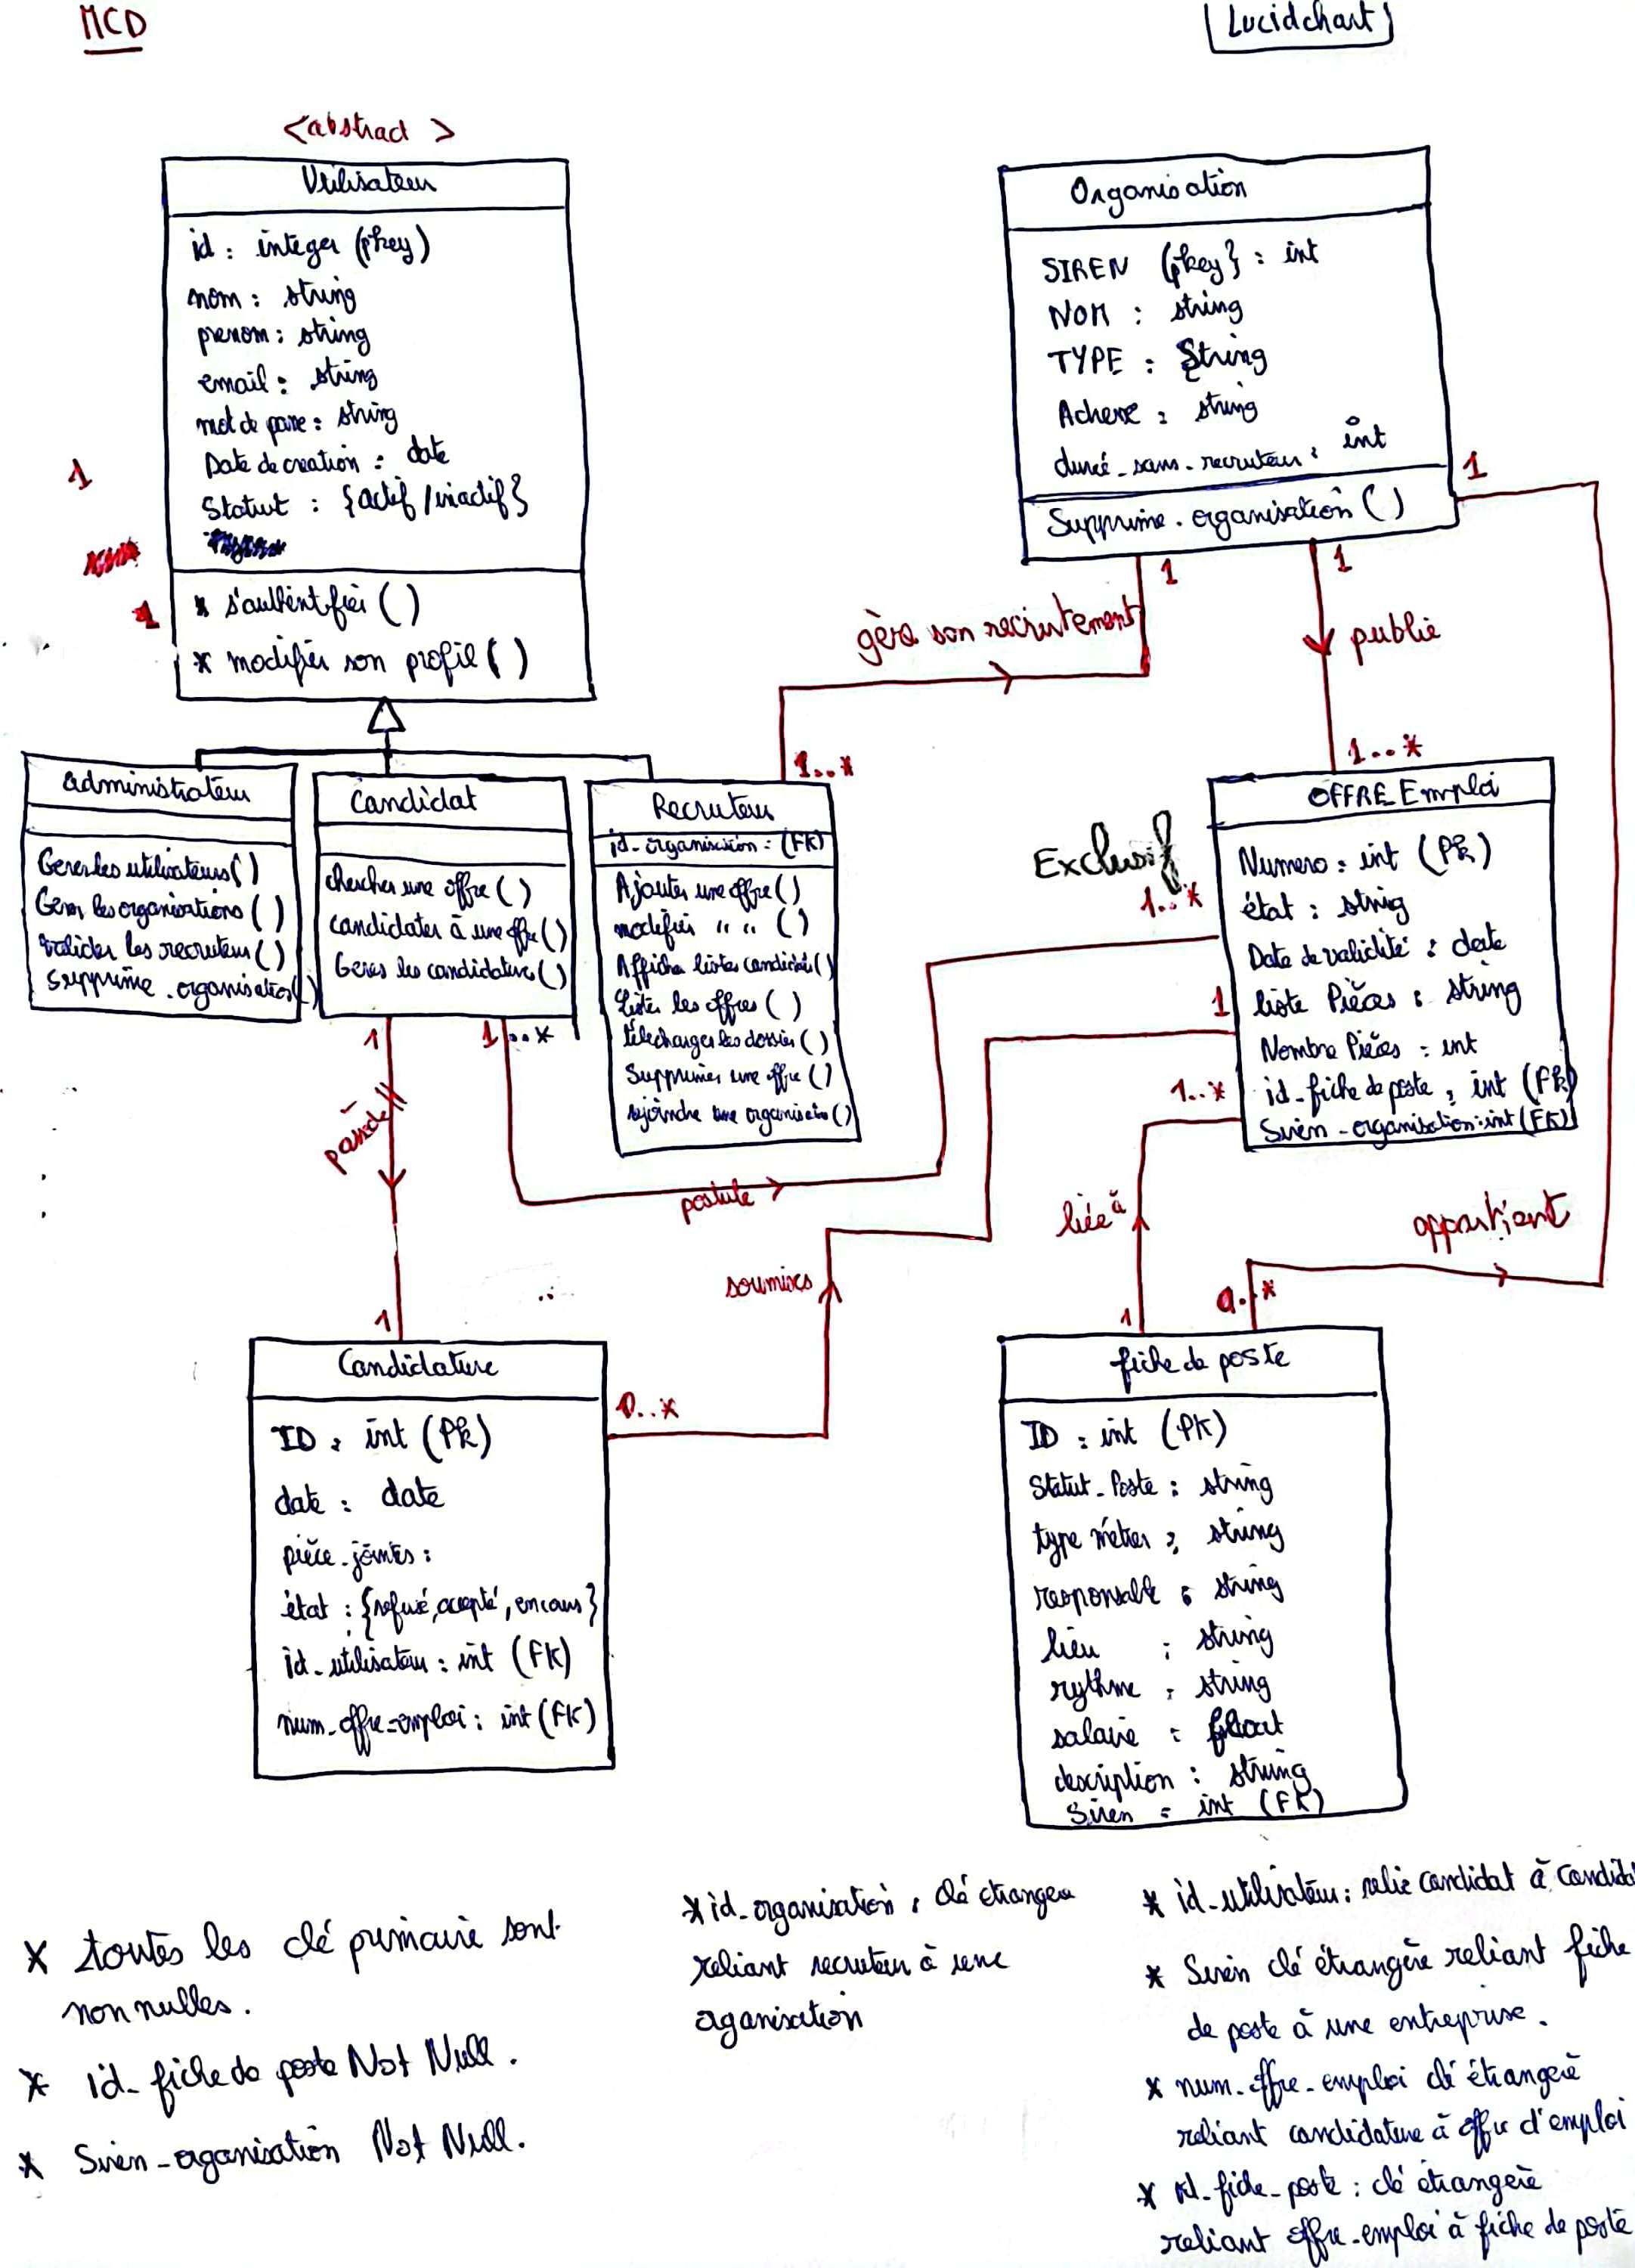 MCD
Lucidchart
<abstract >
Utilisateur
id : integer (pkey)
nom : string
prenom : string
email : string
mot de passe : string
Date de creation : date
Statut : {actif / inactif}
* s'authentifier ( )
* modifier son profil ( )
1
1
Organisation
SIREN {pkey} : int
NOM : string
TYPE : String
Adresse : string
durée_sans_recruteur : int
Supprime_organisation ( )
1
1
1
gère son recrutement
publie
1..*
1..*
administrateur
Gerer les utilisateurs ( )
Gerer les organisations ( )
valider les recruteurs ( )
supprime_organisation ( )
Candidat
chercher une offre ( )
candidater à une offre ( )
Gerer les candidatures ( )
Recruteur
id_organisation : (FK)
Ajouter une offre ( )
modifier " " ( )
Afficher listes candidats ( )
Lister les offres ( )
télécharger les dossiers ( )
Supprimer une offre ( )
rejoindre une organisation ( )
OFFRE Emploi
Numero : int (Pk)
état : string
Date de validité : date
liste Pièces : string
Nombre Pièces : int
id_fiche de poste : int (Fk)
Siren_organisation : int (FK)
Exclusif
1..*
1
1..*
1
1..*
possède
postule
soumises
liée à
appartient
1
0..*
1
0..*
Candidature
ID : int (Pk)
date : date
pièce_jointes :
état : {refusé, accepté, en cours}
id_utilisateur : int (FK)
num_offre_emploi : int (FK)
fiche de poste
ID : int (PK)
Statut_Poste : string
type métier : string
responsable : string
lieu : string
rythme : string
salaire : float
description : string
Siren : int (FK)
* toutes les clé primaire sont
non nulles.
* id_fiche de poste Not Null.
* Siren_organisation Not Null.
* id_organisation : clé étrangere
reliant recruteur à une
organisation
* id_utilisateur : relie candidat à candida
* Siren clé étrangère reliant fiche
de poste à une entreprise.
* num_offre_emploi clé étrangère
reliant candidature à offre d'emploi
* id_fiche_poste : clé étrangère
reliant offre_emploi à fiche de poste